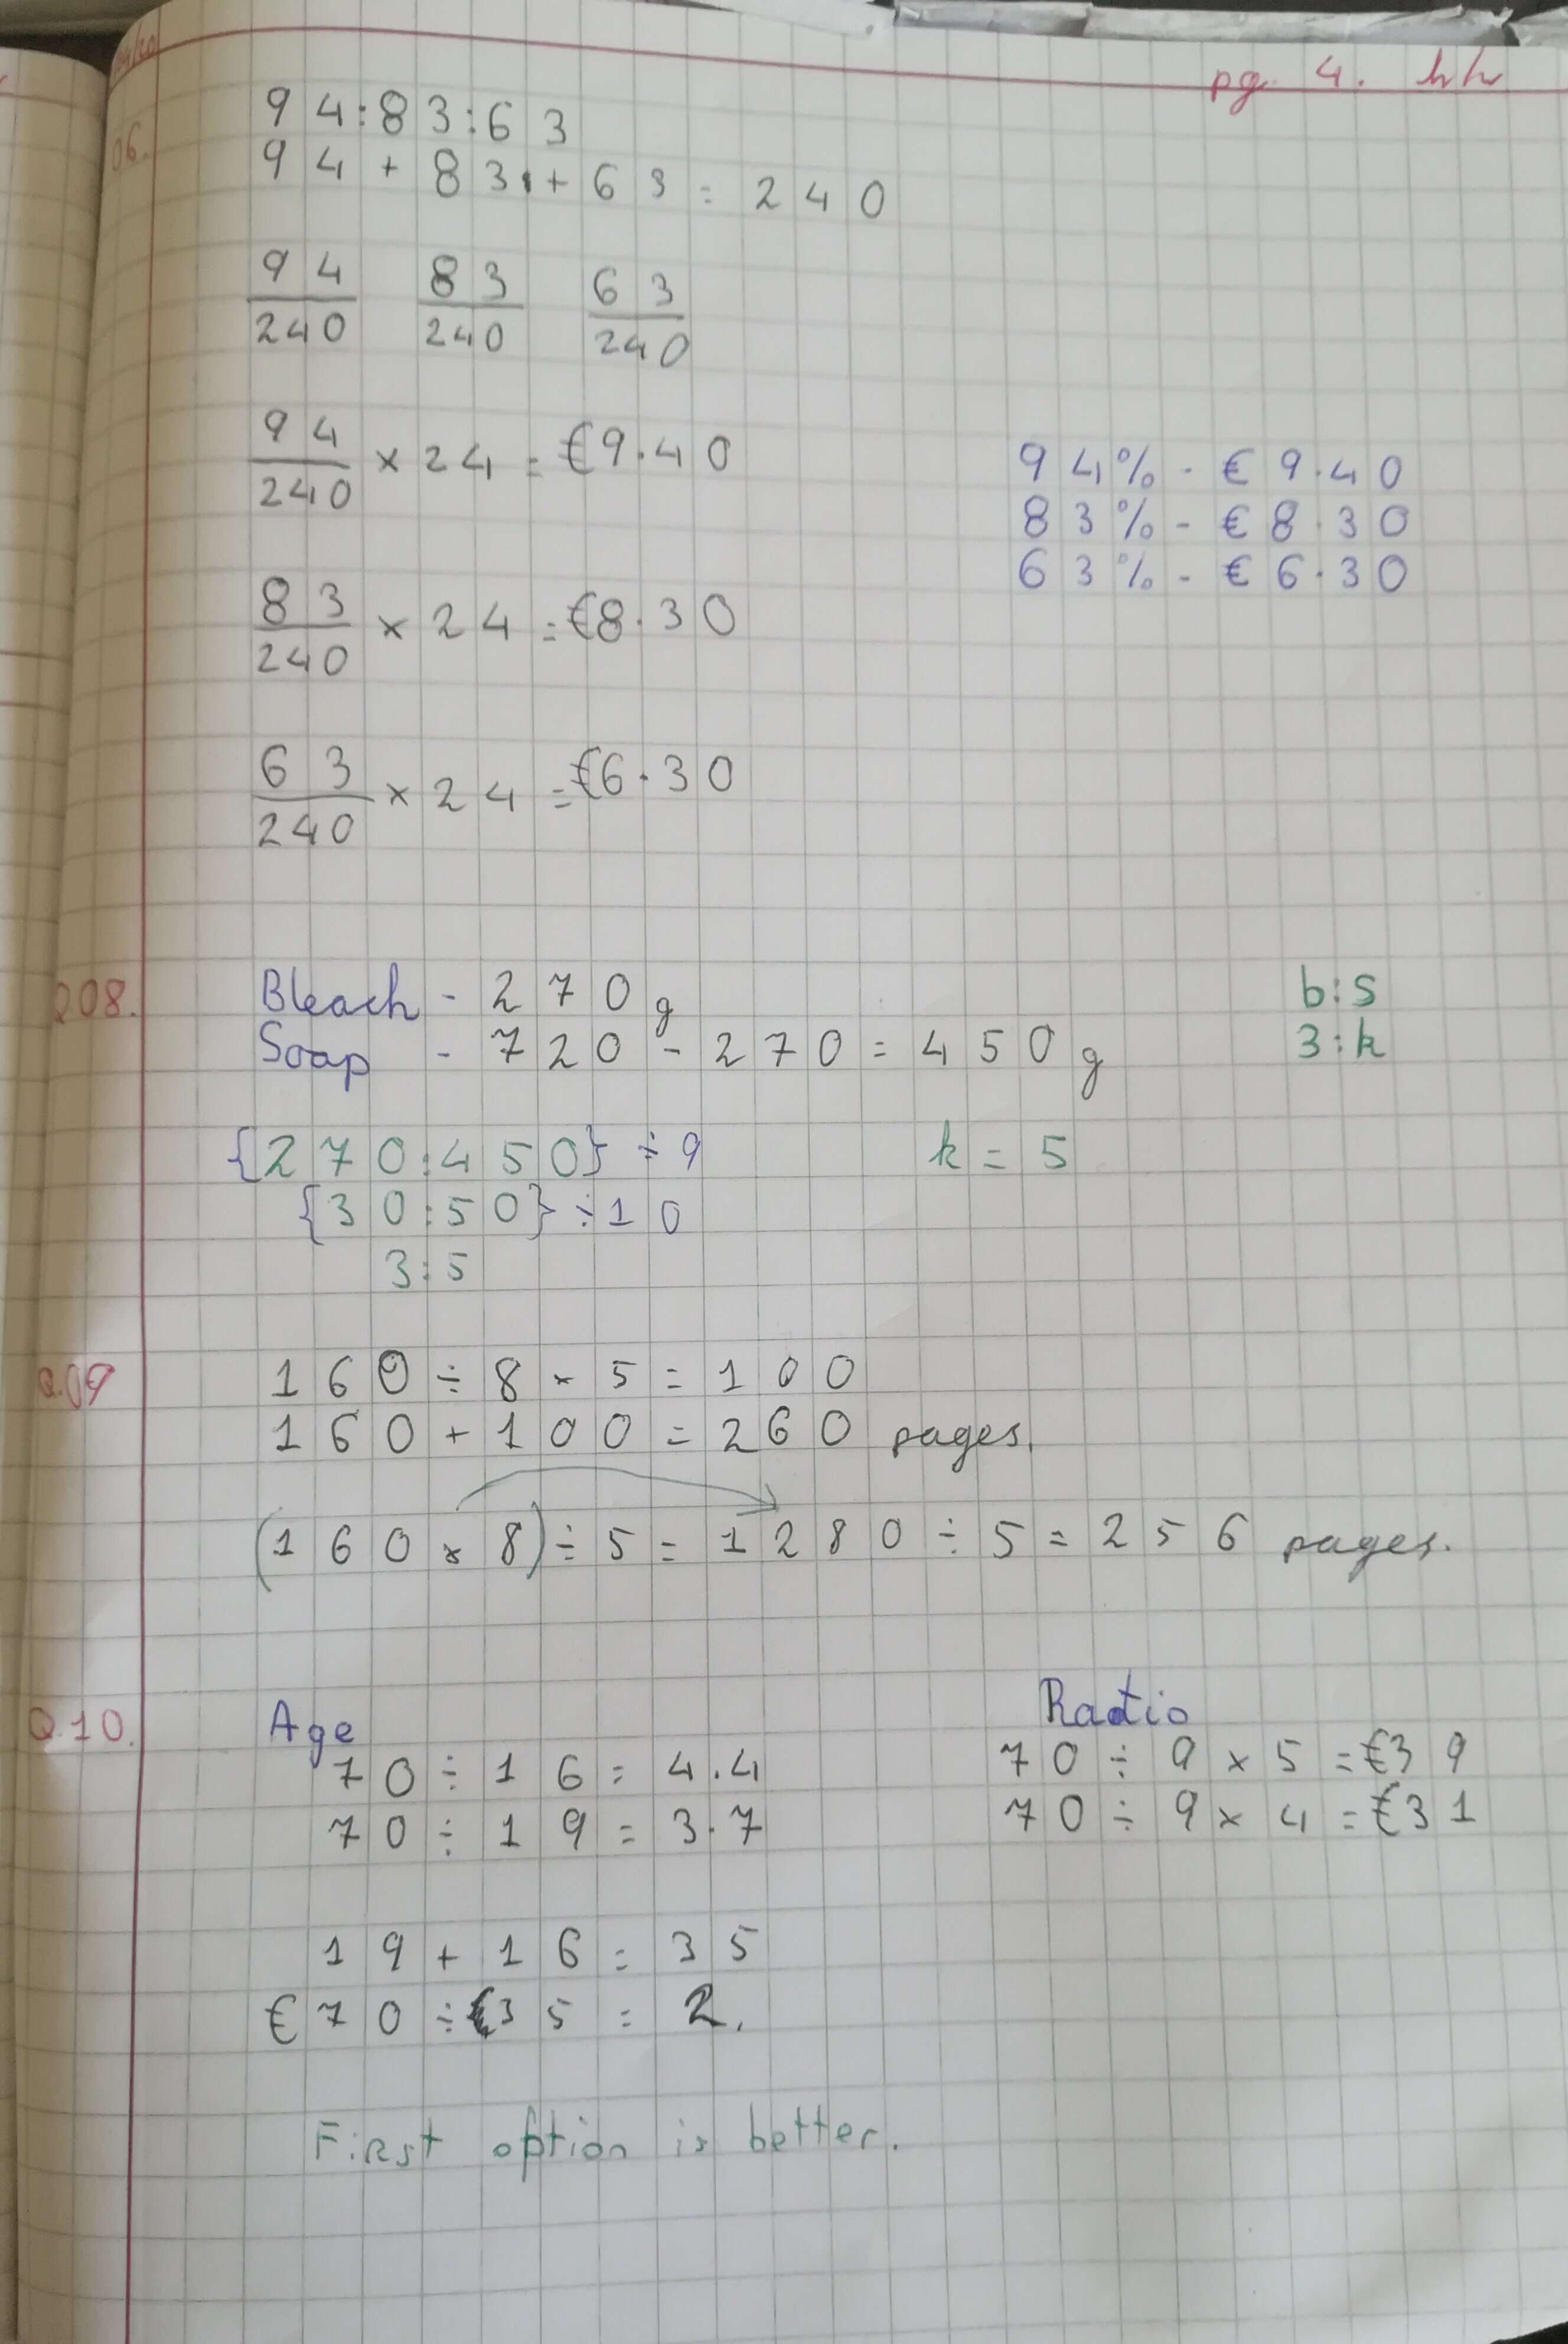 pg. 4. hw
06.
94:83:63
94 + 83 + 63 = 240
94/240 83/240 63/240
94/240 × 24 = €9.40
94% - €9.40
83% - €8.30
63% - €6.30
83/240 × 24 = €8.30
63/240 × 24 = €6.30
Q08.
Bleach - 270g
Soap - 720 - 270 = 450g
b:s
3:k
{270:450} ÷ 9
k = 5
{30:50} ÷ 10
3:5
Q.09
160 ÷ 8 × 5 = 100
160 + 100 = 260 pages.
(160 × 8) ÷ 5 = 1280 ÷ 5 = 256 pages.
Q.10.
Age
70 ÷ 16 = 4.4
70 ÷ 19 = 3.7
Ratio
70 ÷ 9 × 5 = €39
70 ÷ 9 × 4 = €31
19 + 16 = 35
€70 ÷ €35 = 2.
First option is better.